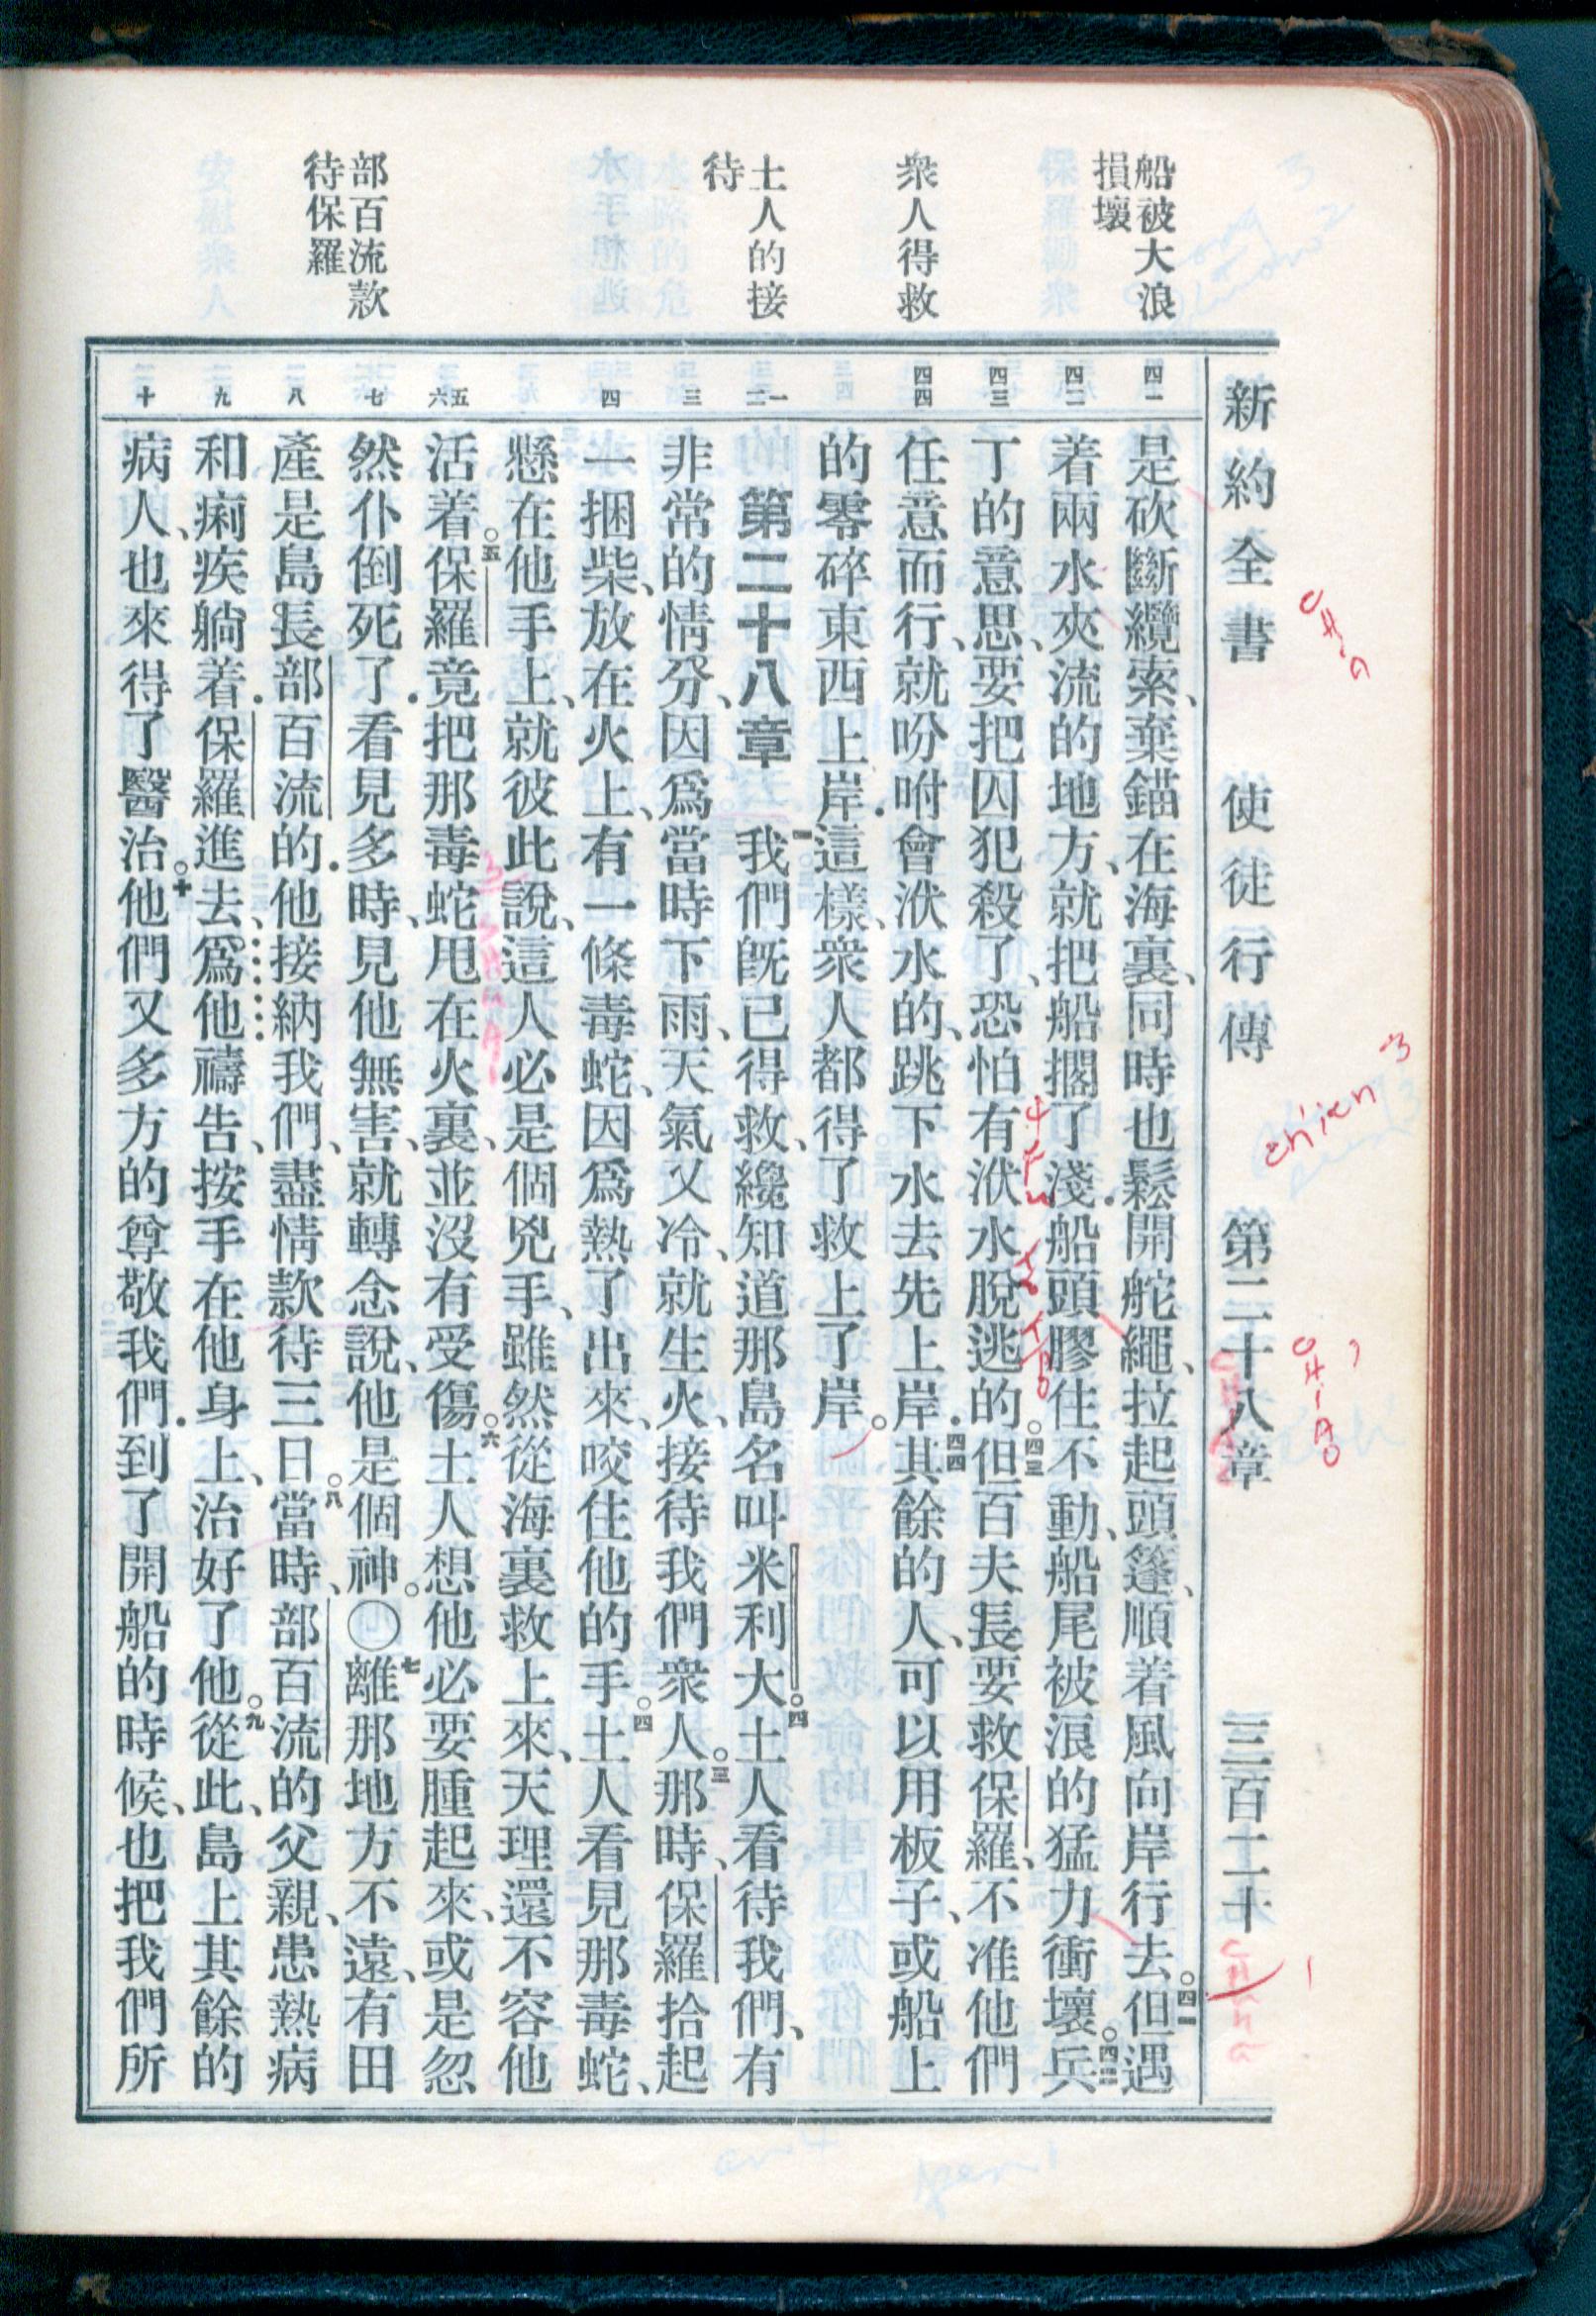 新約全書 使徒行傳 第二十八章 三百二十
船被大浪
損壞
衆人得救
土人的接
待
部百流款
待保羅
四一
四二
四三
四四
一二
三
四
五六
七
八
九
十
是砍斷纜索、棄錨在海裏、同時也鬆開舵繩、拉起頭篷、順着風向岸行去。四一但遇
着兩水夾流的地方、就把船擱了淺．船頭膠住不動、船尾被浪的猛力衝壞。四二兵
丁的意思、要把囚犯殺了、恐怕有洑水脫逃的。四三但百夫長要救保羅、不准他們
任意而行、就吩咐會洑水的、跳下水去先上岸．四四其餘的人、可以用板子、或船上
的零碎東西上岸．這樣、衆人都得了救上了岸。
第二十八章 一我們旣已得救、纔知道那島名叫米利大。四土人看待我們、有
非常的情分、因爲當時下雨、天氣又冷、就生火、接待我們衆人。三那時、保羅拾起
一捆柴、放在火上、有一條毒蛇、因爲熱了出來、咬住他的手。四土人看見那毒蛇、
懸在他手上、就彼此說、這人必是個兇手、雖然從海裏救上來、天理還不容他
活着。五保羅竟把那毒蛇甩在火裏、並沒有受傷。六土人想他必要腫起來、或是忽
然仆倒死了．看見多時、見他無害、就轉念說、他是個神。〇七離那地方不遠、有田
產是島長部百流的．他接納我們、盡情款待三日。八當時、部百流的父親、患熱病
和痢疾躺着．保羅進去、爲他禱告、按手在他身上、治好了他。九從此、島上其餘的
病人、也來得了醫治。十他們又多方的尊敬我們．到了開船的時候、也把我們所
ch'ien 3